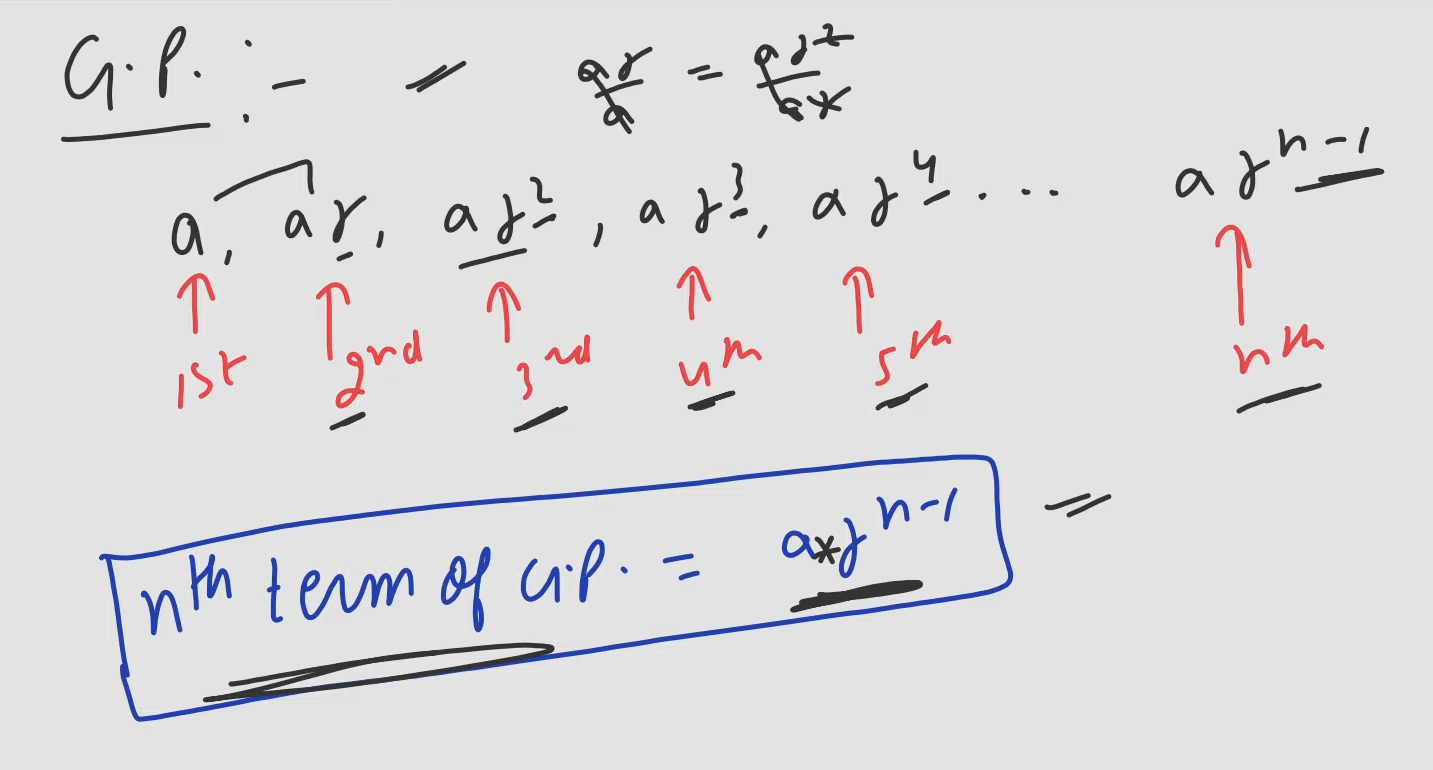 G.P. :- = ar/a = ar²/ar
a, ar, ar², ar³, ar⁴ ... arⁿ⁻¹
1st 2nd 3rd 4th 5th nth
nth term of G.P. = a*rⁿ⁻¹ =